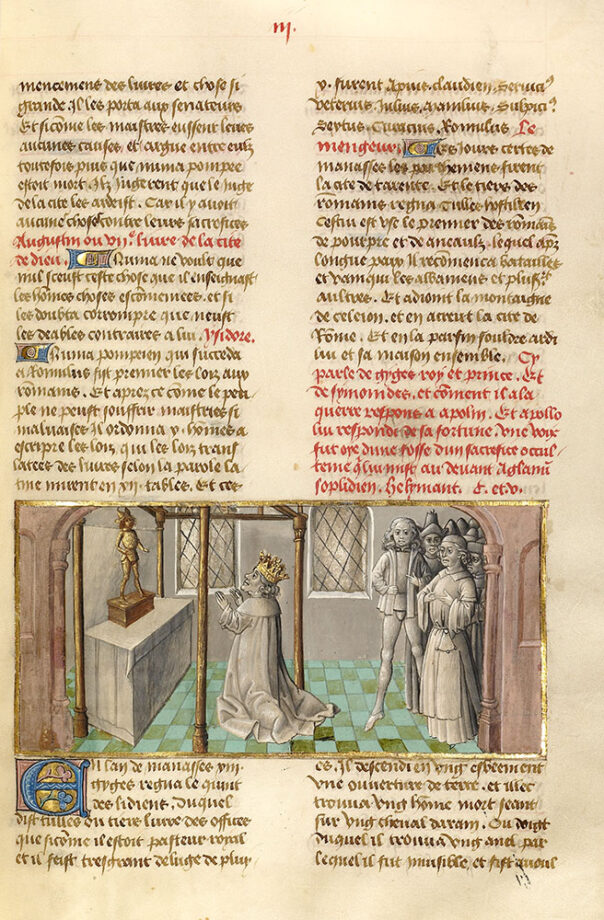 iii.
mencement des livres et chose si
grande Il les porta aux senateurs
Et sicome les maistres eussent leues
aucunes causes, et argue entre eulx
toutefois puis que numa pompee
estoit mort. Ilz jugerent que le juge
de la cite les ardist. Car il y avoit
aucune chose contre leurs sacrefices
Augustin ou vije livre de la cite
de dieu. Numa ne voult que
nul sceust ceste chose que il enseignast
les homes choses escomeniees. et si
les doubta corrompre que neust
les deables contraires a lui. Ysidore.
Numa pompeen qui succeda
a Romulus fist premier les loix aux
rommains. Et aprez ce come le peu
ple ne peust souffrir maistries si
malvaises Il ordonna x. homes a
escripre les loix qui les loix trans
latees des livres selon la parole la
tine mirent en xii. tables. Et ces
x. furent Apius. claudien. Servici9
veterius Julius. Manilius. Sulpici9
Sextus. Curacius. Romulus. Le
mengeur. Es jours certes de
manasses les parthemens firent
la cite de tarente. Et le tiers des
rommains regna Tulles hostilien
Cestui est use le premier des romains
de pourpre et de anceaulx. lequel aprez
longue paix Il recomenca batailles
et vainqui les albaniens et plusrs
aultres. Et adiont la montaigne
de celeion. et en acreut la cite de
Rome. Et en la parfin fouldre ardi
lui et sa maison ensemble. Cy
parle de gyges roy et prince. Et
de symonides. et coment il a la
querre respons a apolin. Et apollo
lui respondi de sa fortune. une voix
fut oye dune fosse dun sacrefice occul
tement q̃ lui mist au devant Aglanii
sophidien. Helymant. C. et v.
El lan de manasses viii.
gyges regna le quint
des lidiens. Duquel
dist tulles ou tiers livre des offices
que sicome il estoit pasteur royal
et il feist tresgrant deluge de pluy
es. Il descendi en ung esbeement
une ouverture de terre. et illec
trouva ung home mort seant
sur ung cheval darain. Ou doigt
duquel il trouva ung anel par
lequel il fut invisible, et fist aveul